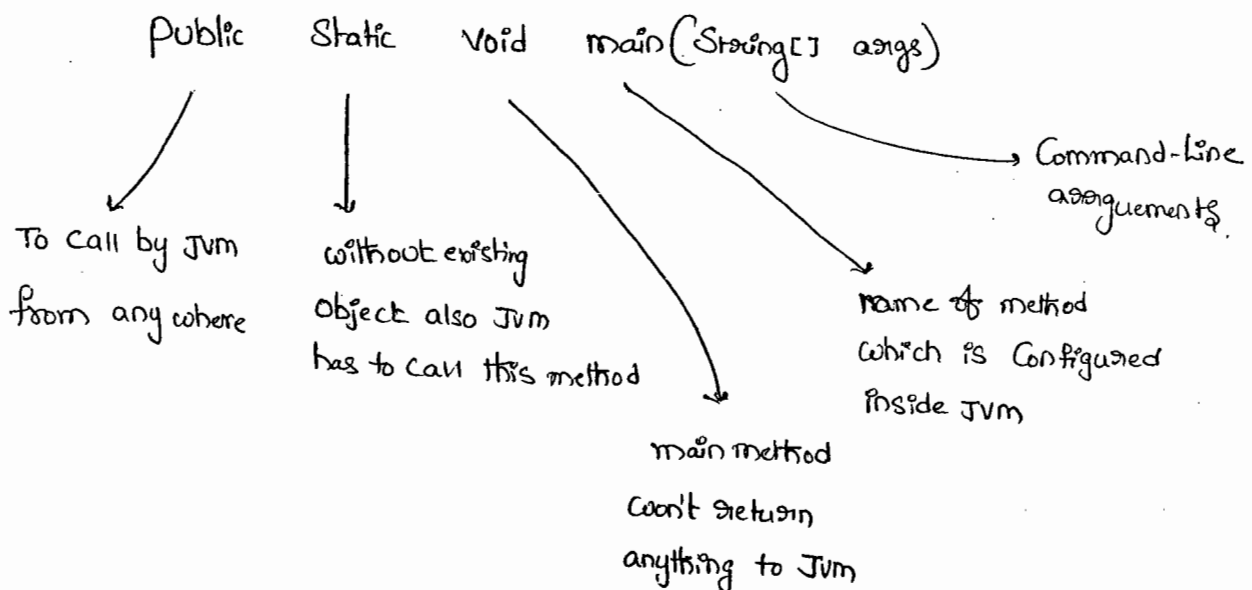 Public Static Void main(String[] args)
To Call by JVM
from any where
without existing
Object also JVM
has to call this method
main method
won't return
anything to JVM
name of method
which is Configured
inside JVM
Command-Line
arguements.